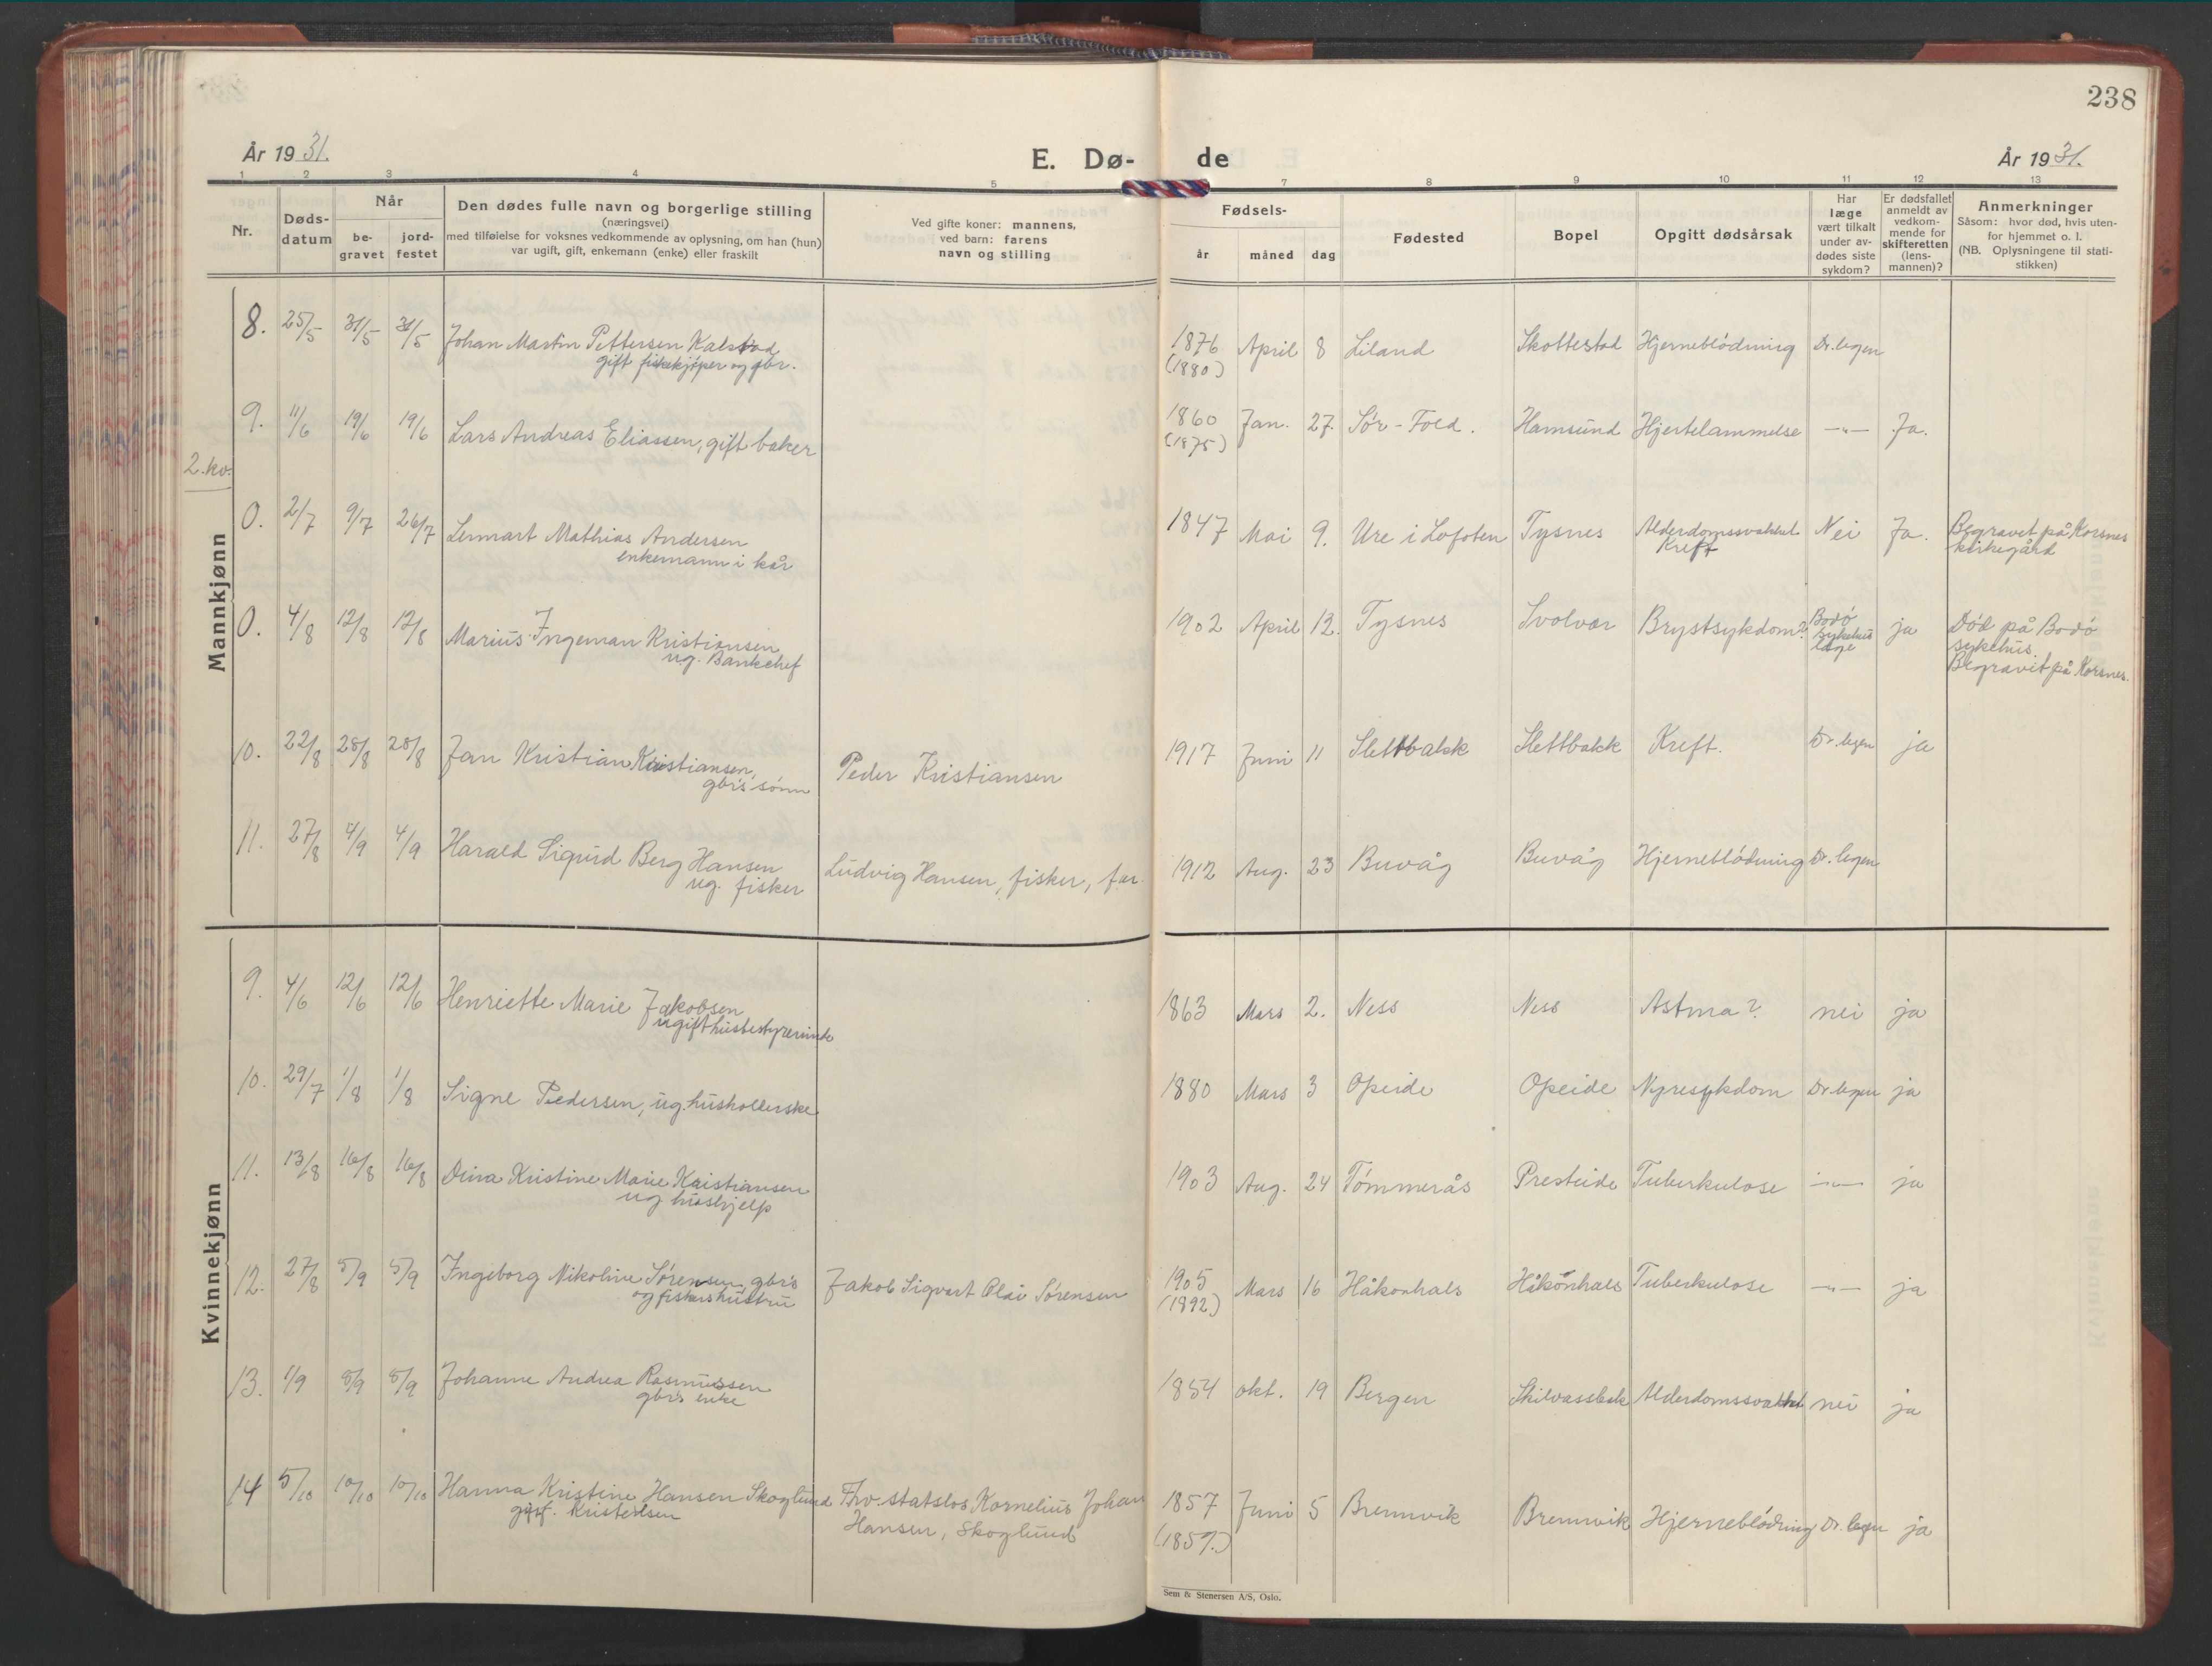 238
År 1931.
E. Dø- de
År 1931.
1 2 3 4 5 7 8 9 10 11 12 13
Nr.
Døds-
datum
Når
be-
gravet
jord-
festet
Den dødes fulle navn og borgerlige stilling
(næringsvei)
med tilføielse for voksnes vedkommende av oplysning, om han (hun)
var ugift, gift, enkemann (enke) eller fraskilt
Ved gifte koner: mannens,
ved barn: farens
navn og stilling
Fødsels-
år måned dag
Fødested
Bopel
Opgitt dødsårsak
Har
læge
vært tilkalt
under av-
dødes siste
sykdom?
Er dødsfallet
anmeldt av
vedkom-
mende for
skifteretten
(lens-
mannen)?
Anmerkninger
Såsom: hvor død, hvis uten-
for hjemmet o. l.
(NB. Oplysningene til stati-
stikken)
Mannkjønn
8. 25/5 31/5 31/5 Johan Martin Pettersen Kalstad 1876 April 8 Liland Skottestad Hjerneblödning Dr. legen
gift fiskekjöper og gbr. (1880)
9. 11/6 19/6 19/6 Lars Andreas Eliassen, gift baker 1860 Jan. 27. Sör-Fold. Hamsund Hjertelammelse —"— Ja.
(1875)
2. kv.
0. 2/7 9/7 26/7 Lennart Mathias Andersen 1847 Mai 9. Ure i Lofoten Tysnes Alderdomssvakhet Nei Ja. Begravet på Korsnes
enkemann i kår Kreft kirkegård
0. 4/8 12/8 12/8 Marius Ingeman Kristiansen 1902 April 12. Tysnes Svolvær Brystsykdom? Bodö sykehus læge ja Död på Bodö
ug. Bankchef sykehus.
Begravet på Korsnes.
10. 22/8 28/8 28/8 Jan Kristian Kristiansen, Peder Kristiansen 1917 Juni 11 Slettbakk Slettbakk Kreft. Dr. legen ja
gbr's sönn
11. 27/8 4/9 4/9 Harald Sigurd Berg Hansen Ludvig Hansen, fisker, far. 1912 Aug. 23 Buvåg Buvåg Hjerneblödning Dr. legen
ug. fisker
Kvinnekjønn
9. 4/6 12/6 12/6 Henriette Marie Jakobsen 1863 Mars 2. Ness Ness Astma? nei ja
ugift husbestyrerinde
10. 29/7 1/8 1/8 Signe Pedersen, ug. husholderske 1880 Mars 3 Opeide Opeide Nyresykdom Dr. legen ja
11. 13/8 16/8 16/8 Dina Kristine Marie Kristiansen 1903 Aug. 24 Tömmerås Presteide Tuberkulose —"— ja
ug hushjelp
12. 27/8 5/9 5/9 Ingeborg Nikoline Sörensen, gbr's Jakob Sigvart Olai Sörensen 1905 Mars 16 Håkonhals Håkonhals Tuberkulose —"— ja
og fiskers hustru (1892)
13. 1/9 8/9 8/9 Johanne Andrea Rasmussen 1854 okt. 19 Bergen Skilvassbakk Alderdomssvakhet nei ja
gbr's enke
14 5/10 10/10 10/10 Hanna Kristine Hansen Skoglund Fhv. statslos Kornelius Johan 1857 Juni 5 Bremvik Bremvik Hjerneblödning Dr. legen ja
gift. Kristensen Hansen, Skoglund (1857.)
Sem & Stenersen A/S, Oslo.